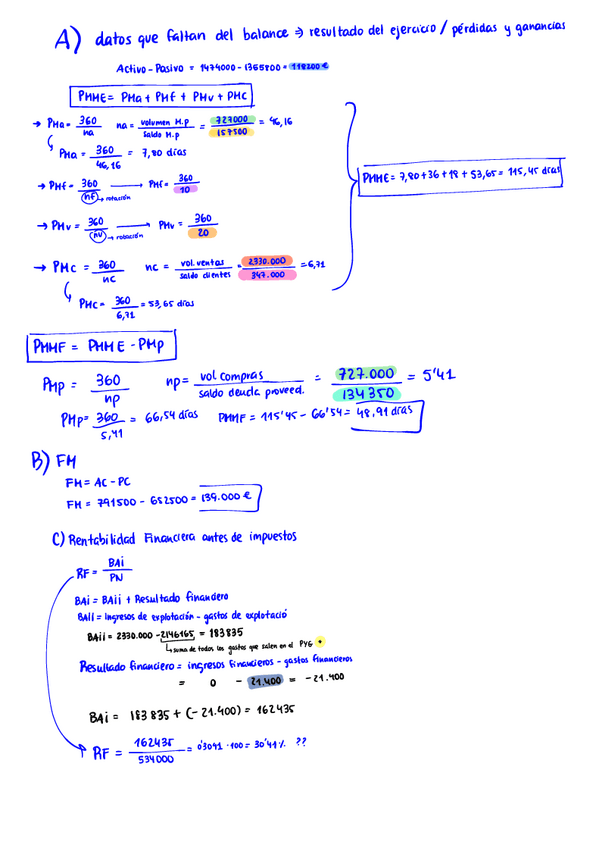 A) datos que faltan del balance ⇒ resultado del ejercicio / pérdidas y ganancias
Activo - Pasivo = 1474000 - 1355800 = 118200 €
PMME = PMa + PMf + PMv + PMc
→ PMa = 360/na na = volumen M.p/saldo M.p = 727000/157500 = 46,16
PMa = 360/46,16 = 7,80 días
→ PMf = 360/nf → rotación → PMf = 360/10
→ PMv = 360/nv → rotación → PMv = 360/20
→ PMc = 360/nc nc = vol. ventas/saldo clientes = 2330.000/347.000 = 6,71
PMc = 360/6,71 = 53,65 días
PMME = 7,80 + 36 + 18 + 53,65 = 115,45 días
PMMF = PMME - PMp
PMp = 360/np np = vol compras/saldo deuda proveed. = 727.000/134350 = 5'41
PMp = 360/5,41 = 66,54 días PMMF = 115'45 - 66'54 = 48,91 días
B) FM
FM = AC - PC
FM = 791500 - 652500 = 139.000 €
C) Rentabilidad Financiera antes de impuestos
RF = BAi/PN
BAi = BAii + Resultado financiero
BAII = Ingresos de explotación - gastos de explotació
BAii = 2330.000 - 2146165 = 183835
suma de todos los gastos que salen en el PYG
Resultado financiero = ingresos financieros - gastos financieros
= 0 - 21.400 = -21.400
BAi = 183835 + (-21.400) = 162435
RF = 162435/534000 = 0'3041 · 100 = 30'41% ??